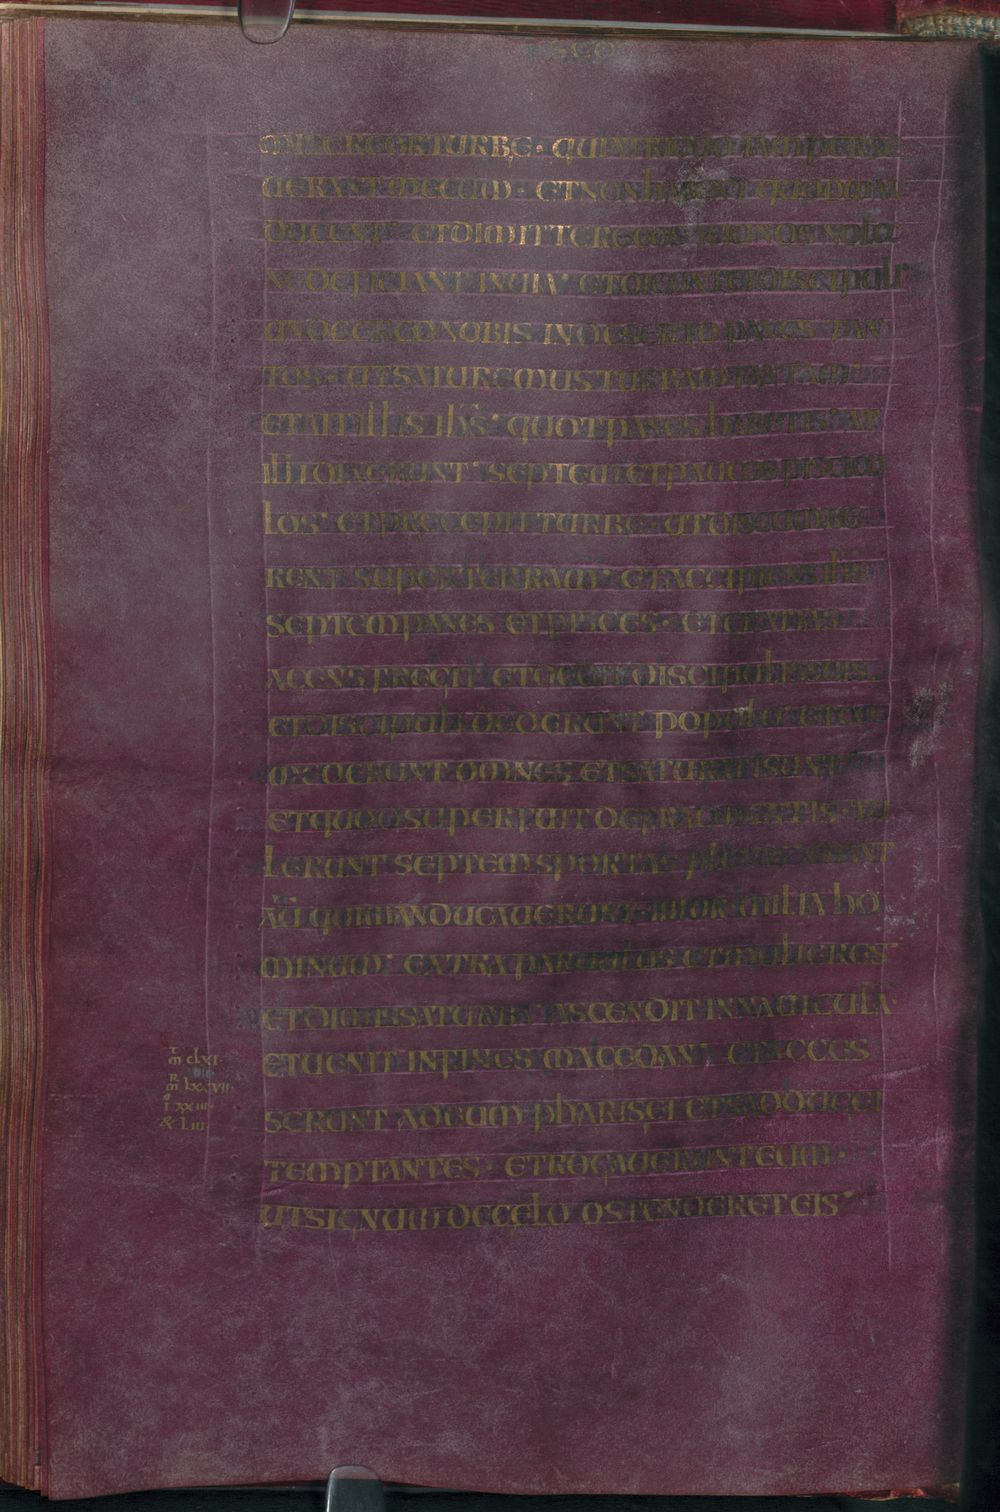 SCD
MISEREOR TURBE · QUIA TRIDUO IAM PERSE
UERANT MECUM · ET NON HABENT QUOD MAN
DUCENT · ET DIMITTERE EOS IEIUNOS NOLO
NE DEFICIANT IN UIA · ET DICUNT EI DISCIPULI
UNDE ERGO NOBIS IN DESERTO PANES TAN
TOS · UT SATUREMUS TURBAM TANTAM
ET AIT ILLIS IHS · QUOT PANES HABETIS · AT
ILLI DIXERUNT · SEPTEM ET PAUCOS PISCICU
LOS · ET PRECEPIT TURBE · UT DISCUMBE
RENT SUPER TERRAM · ET ACCIPIENS IHS
SEPTEM PANES ET PISCES · ET GRATIAS
AGENS FREGIT ET DEDIT DISCIPULIS SUIS ·
ET DISCIPULI DEDERUNT POPULO · ET CO
MEDERUNT OMNES ET SATURATI SUNT
ET QUOD SUPERFUIT DE FRAGMENTIS · TU
LERUNT SEPTEM SPORTAS PLENAS · ERANT
AŪ QUI MANDUCAUERUNT · IIIIOR MILIA HO
MINUM · EXTRA PARUULOS ET MULIERES ·
ET DIMISSA TURBA ASCENDIT IN NAUICULĀ
ET UENIT IN FINES MAGEDAN · ET ACCES
SERUNT AD EUM PHARISEI ET SADDUCEI
m̄ clxi
m̄ lxxvii
TEMPTANTES · ET ROGAUERUNT EUM ·
UT SIGNUM DE CELO OSTENDERET EIS ·